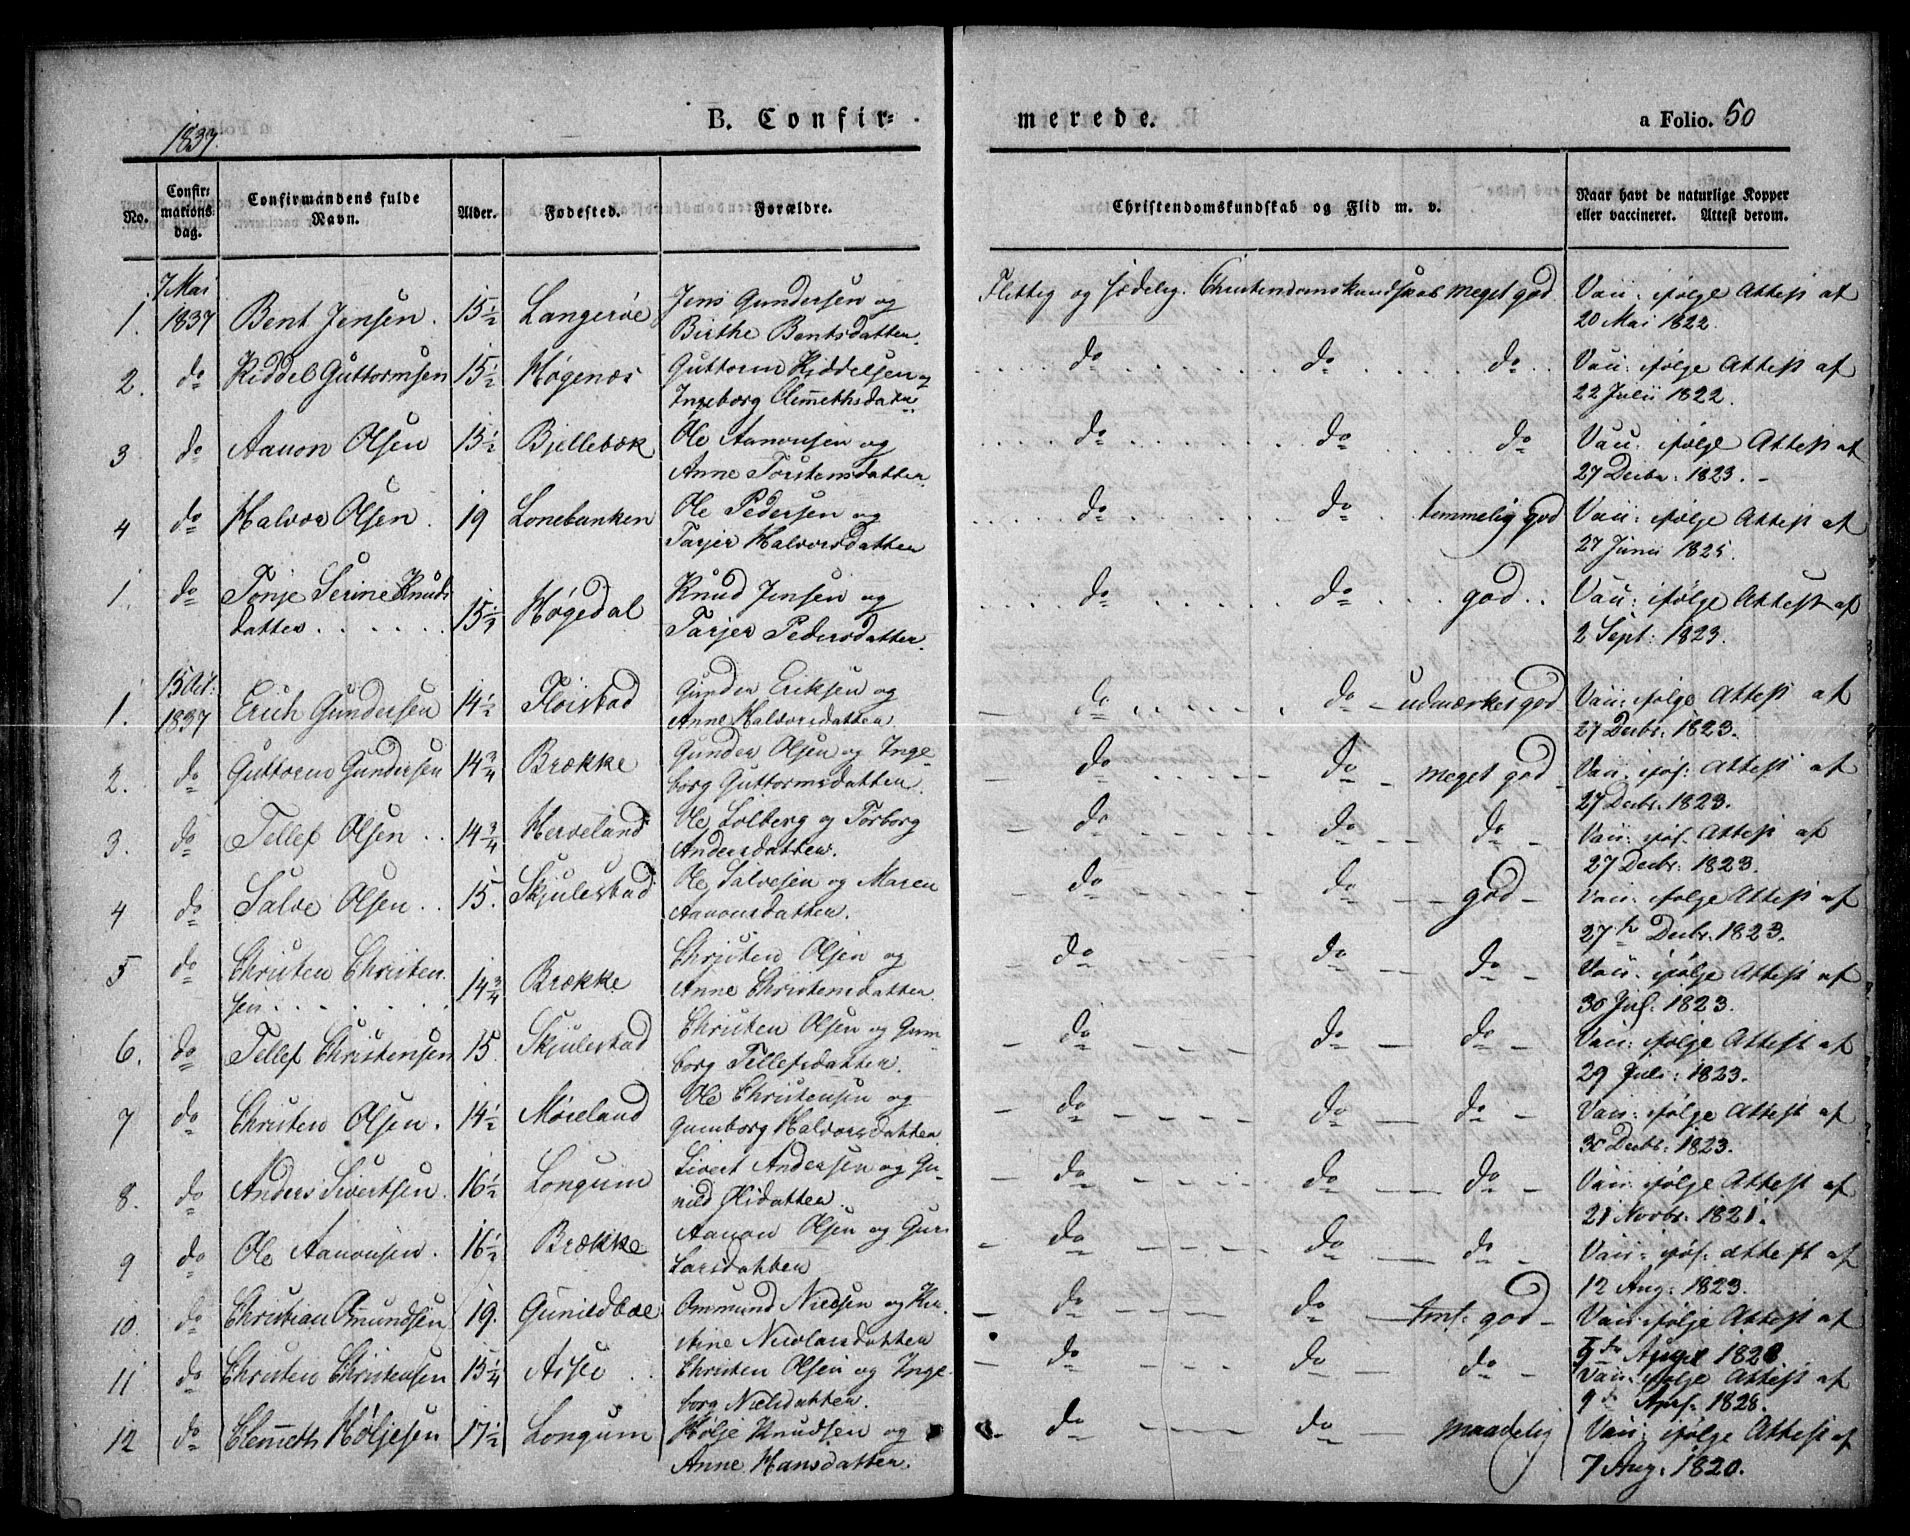 1837.
B. Confir=
merede.
a Folio. 50
No.
Confir=
mations
dag.
Confirmandens fulde
Navn.
Alder.
Fødested.
Forældre.
Christendomskundskab og Flid m. v.
Naar havt de naturlige Kopper
eller vaccineret. Attest derom.
7 Mai
1. 1837 Bent Jensen. 15½ Langerøe Jens Gundersen og
Birthe Bentsdatter.
Flittig og sædelig. Christendomskundskab meget god
Vac: ifølge Attest af
20 Mai 1822.
2. do Kiddel Guttormsen 15½ Høgenæs Guttorm Kiddelsen og
Ingeborg Clemethsdatter
do do do
Vac: ifølge Attest af
22 Julii 1822.
3 do Aanon Olsen 15½ Bjellebæk Ole Aanonsen og
Anne Torstensdatter.
do do do
Vac: ifølge Attest af
27 Decbr. 1823. -
4 do Halvor Olsen. 19 Lonebanken Ole Pedersen og
Tarjer Halvorsdatter
do do temmelig god
Vac: ifølge Attest af
27 Junii 1825.
1. do Tonje Serine Knuds
datter 15½ Høgedal Knud Jensen og
Tarjer Pedersdatter.
do do god
Vac: ifølge Attest af
2 Sept: 1823.
15 Oct:
1. 1837 Erich Gundersen 14½ Fløistad Gunder Eriksen og
Anne Halvorsdatter
do do udmærket god
Vac: ifølge Attest af
27 Decbr: 1823.
2. do Guttorm Gundersen 14¾ Brække Gunder Olsen og Inge-
borg Guttormsdatter.
do do meget god
Vac: iføl: Attest af
27 Decbr: 1823.
3. do Tellef Olsen 14¾ Herveland Ole Solberg og Torborg
Andersdatter.
do do do
Vac: iføl: Attest af
27 Decbr. 1823.
4 do Salve Olsen 15. Skjulestad Ole Salvesen og Maren
Aanonsdatter.
do do god
Vac: ifølge Attest af
27 Decbr. 1823.
5 do Christen Christen
sen 14¾ Brække Christen Olsen og
Anne Christensdatter.
do do do
Vac: ifølge Attest af
30 Jul. 1823.
6. do Tellef Christensen 15. Skjulestad Christen Olsen og Gun-
borg Tellefsdatter.
do do do
Vac: ifølge Attest af
29 Juli: 1823.
7 do Christen Olsen. 14½ Møreland Ole Christensen og
Gunborg Halvorsdatter.
do do do
Vac: ifølge Attest af
30 Decbr: 1823.
8. do Anders Sivertsen. 16½ Longum Sivert Andersen og Gu-
nild Olsdatter
do do do
Vac: ifølge Attest af
21 Novbr. 1821.
9 do Ole Aanonsen. 16½ Brække Aanon Olsen og Guri
Larsdatter
do do do
Vac: iføl: Attest af
12 Aug: 1823.
10. do Christian Omundsen 19. Gunildboe Ommund Nielsen og
Nicolaisdatter
do do tml: god
Vac: ifølge Attest af
11 do Christen Christensen 15¼ Assee Christen Olsen og Inge-
borg Nielsdatter.
do do do
Vac: ifølge Attest af
12 do Clemeth Høljesen 17½ Longum Hølje Knudsen og
Anne Hansdatter.
do do maadelig
Vac: ifølge Attest af
7 Aug: 1820.